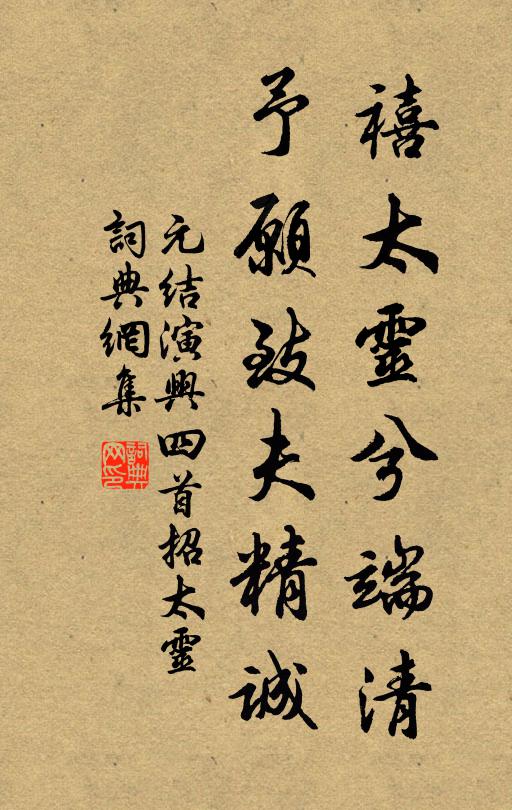 禧太靈兮端清
予願致夫精誠
元結演興四首招太靈
詞典網集
詞典网印